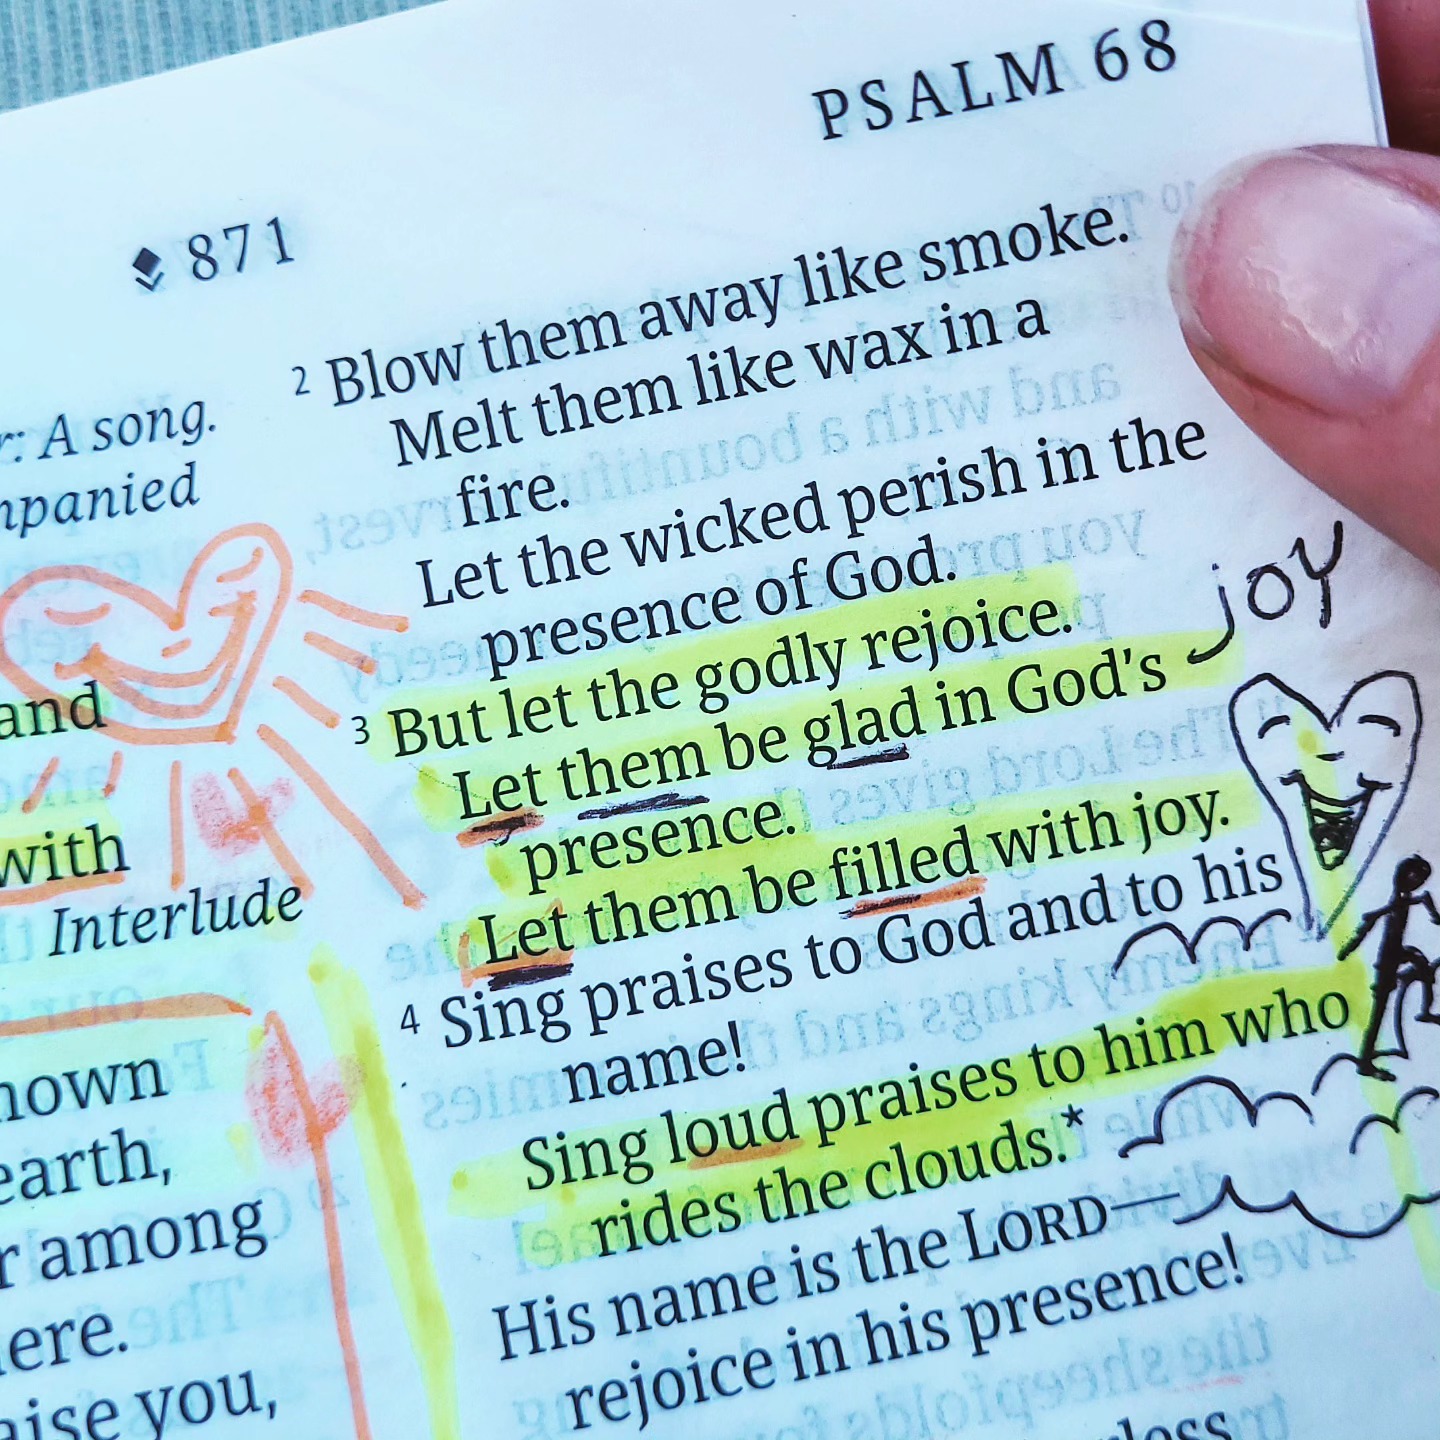 PSALM 68
871
r: A song.
mpanied
and
with
Interlude
nown
earth,
r among
ere.
aise you,
2 Blow them away like smoke.
Melt them like wax in a
fire.
Let the wicked perish in the
presence of God.
3 But let the godly rejoice.
Let them be glad in God's
presence.
Let them be filled with joy.
4 Sing praises to God and to his
name!
Sing loud praises to him who
rides the clouds.*
His name is the LORD—
rejoice in his presence!
joy